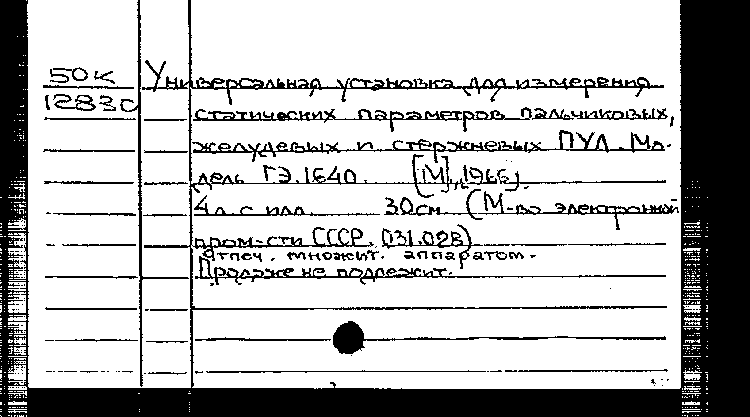 50к
12830
Универсальная установка для измерения
статических параметров пальчиковых,
желудевых и стержневых ПУЛ. Мо-
дель ГЭ.1640. [М], 1966].
4 л. с илл. 30см. (М-во электронной
пром-сти СССР. 031.028)
Отпеч. множит. аппаратом.
Продаже не подлежит.